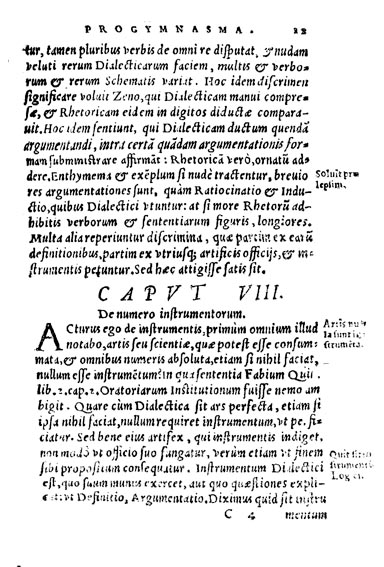 PROGYMNASMA. 22
tur, tamen pluribus verbis de omni re disputat, & nudam
veluti rerum Dialecticarum faciem, multis & verbo-
rum & rerum Schematis variat. Hoc idem discrimen
significare voluit Zeno, qui Dialecticam manui compres
sæ, & Rhetoricam eidem in digitos diductæ compara-
uit. Hoc idem sentiunt, qui Dialecticam ductum quendã
argumentandi, intra certã quãdam argumentationis for-
mam subministrare affirmãt: Rhetoricã verò, ornatũ ad-
dere. Enthymema & exẽplum si nudè tractentur, breuio
res argumentationes sunt, quàm Ratiocinatio & Indu-
ctio, quibus Dialectici vtuntur: at si more Rhetorũ ad-
hibitis verborum & sententiarum figuris, longiores.
Multa alia reperiuntur discrimina, quæ partim ex earũ
definitionibus, partim ex vtriusq; artificis officijs, & in-
strumentis petuntur. Sed hæc attigisse satis sit.
Soluit pro
lepsim.
CAPVT VIII.
De numero instrumentorum.
ACturus ego de instrumentis, primùm omnium illud
notabo, artis seu scientiæ, quæ potest esse consum-
mata, & omnibus numeris absoluta, etiam si nihil faciat,
nullum esse instrumẽtum: in qua sententia Fabium Quii.
lib. 2. cap. 2. Oratoriarum Institutionum fuisse nemo am
bigit. Quare cùm Dialectica sit ars perfecta, etiam si
ipsa nihil faciat, nullum requiret instrumentum, vt pe. fi-
ciatur. Sed bene eius artifex, qui instrumentis indiget,
non modò vt officio suo fungatur, verùm etiam vt finem
sibi propositum consequatur. Instrumentum Dialectici
est, quo suum munus exercet, aut quo quæstiones expli-
cat: vt Definitio, Argumentatio. Diximus quid sit instru
Artis nul
la sunt in-
strumẽta.
Quit sint
instrumenta
Logici.
C 4 mentum